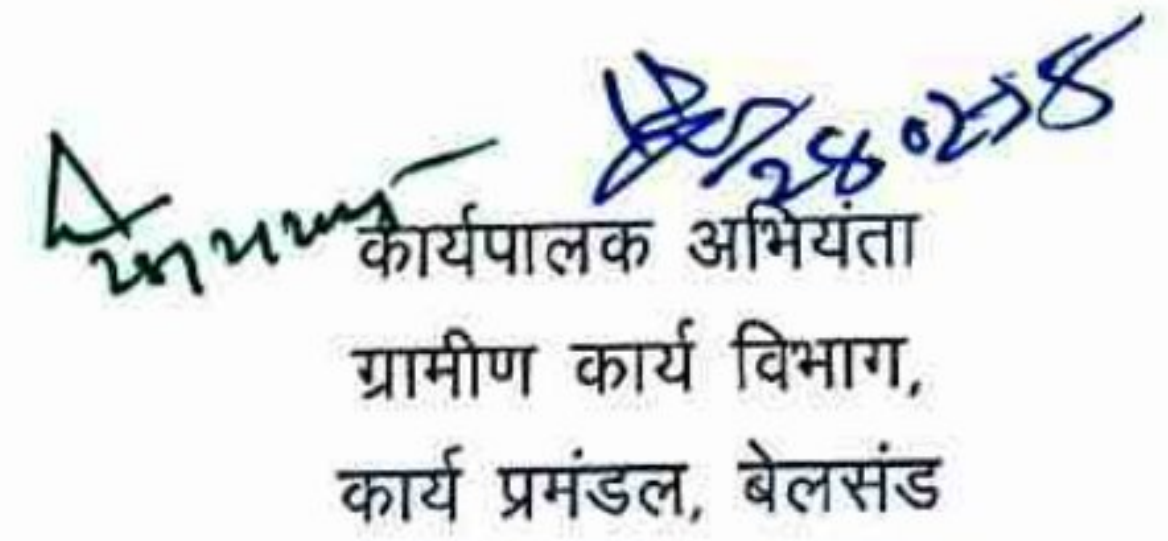 कार्यपालक अभियंता
ग्रामीण कार्य विभाग,
कार्य प्रमंडल, बेलसंड